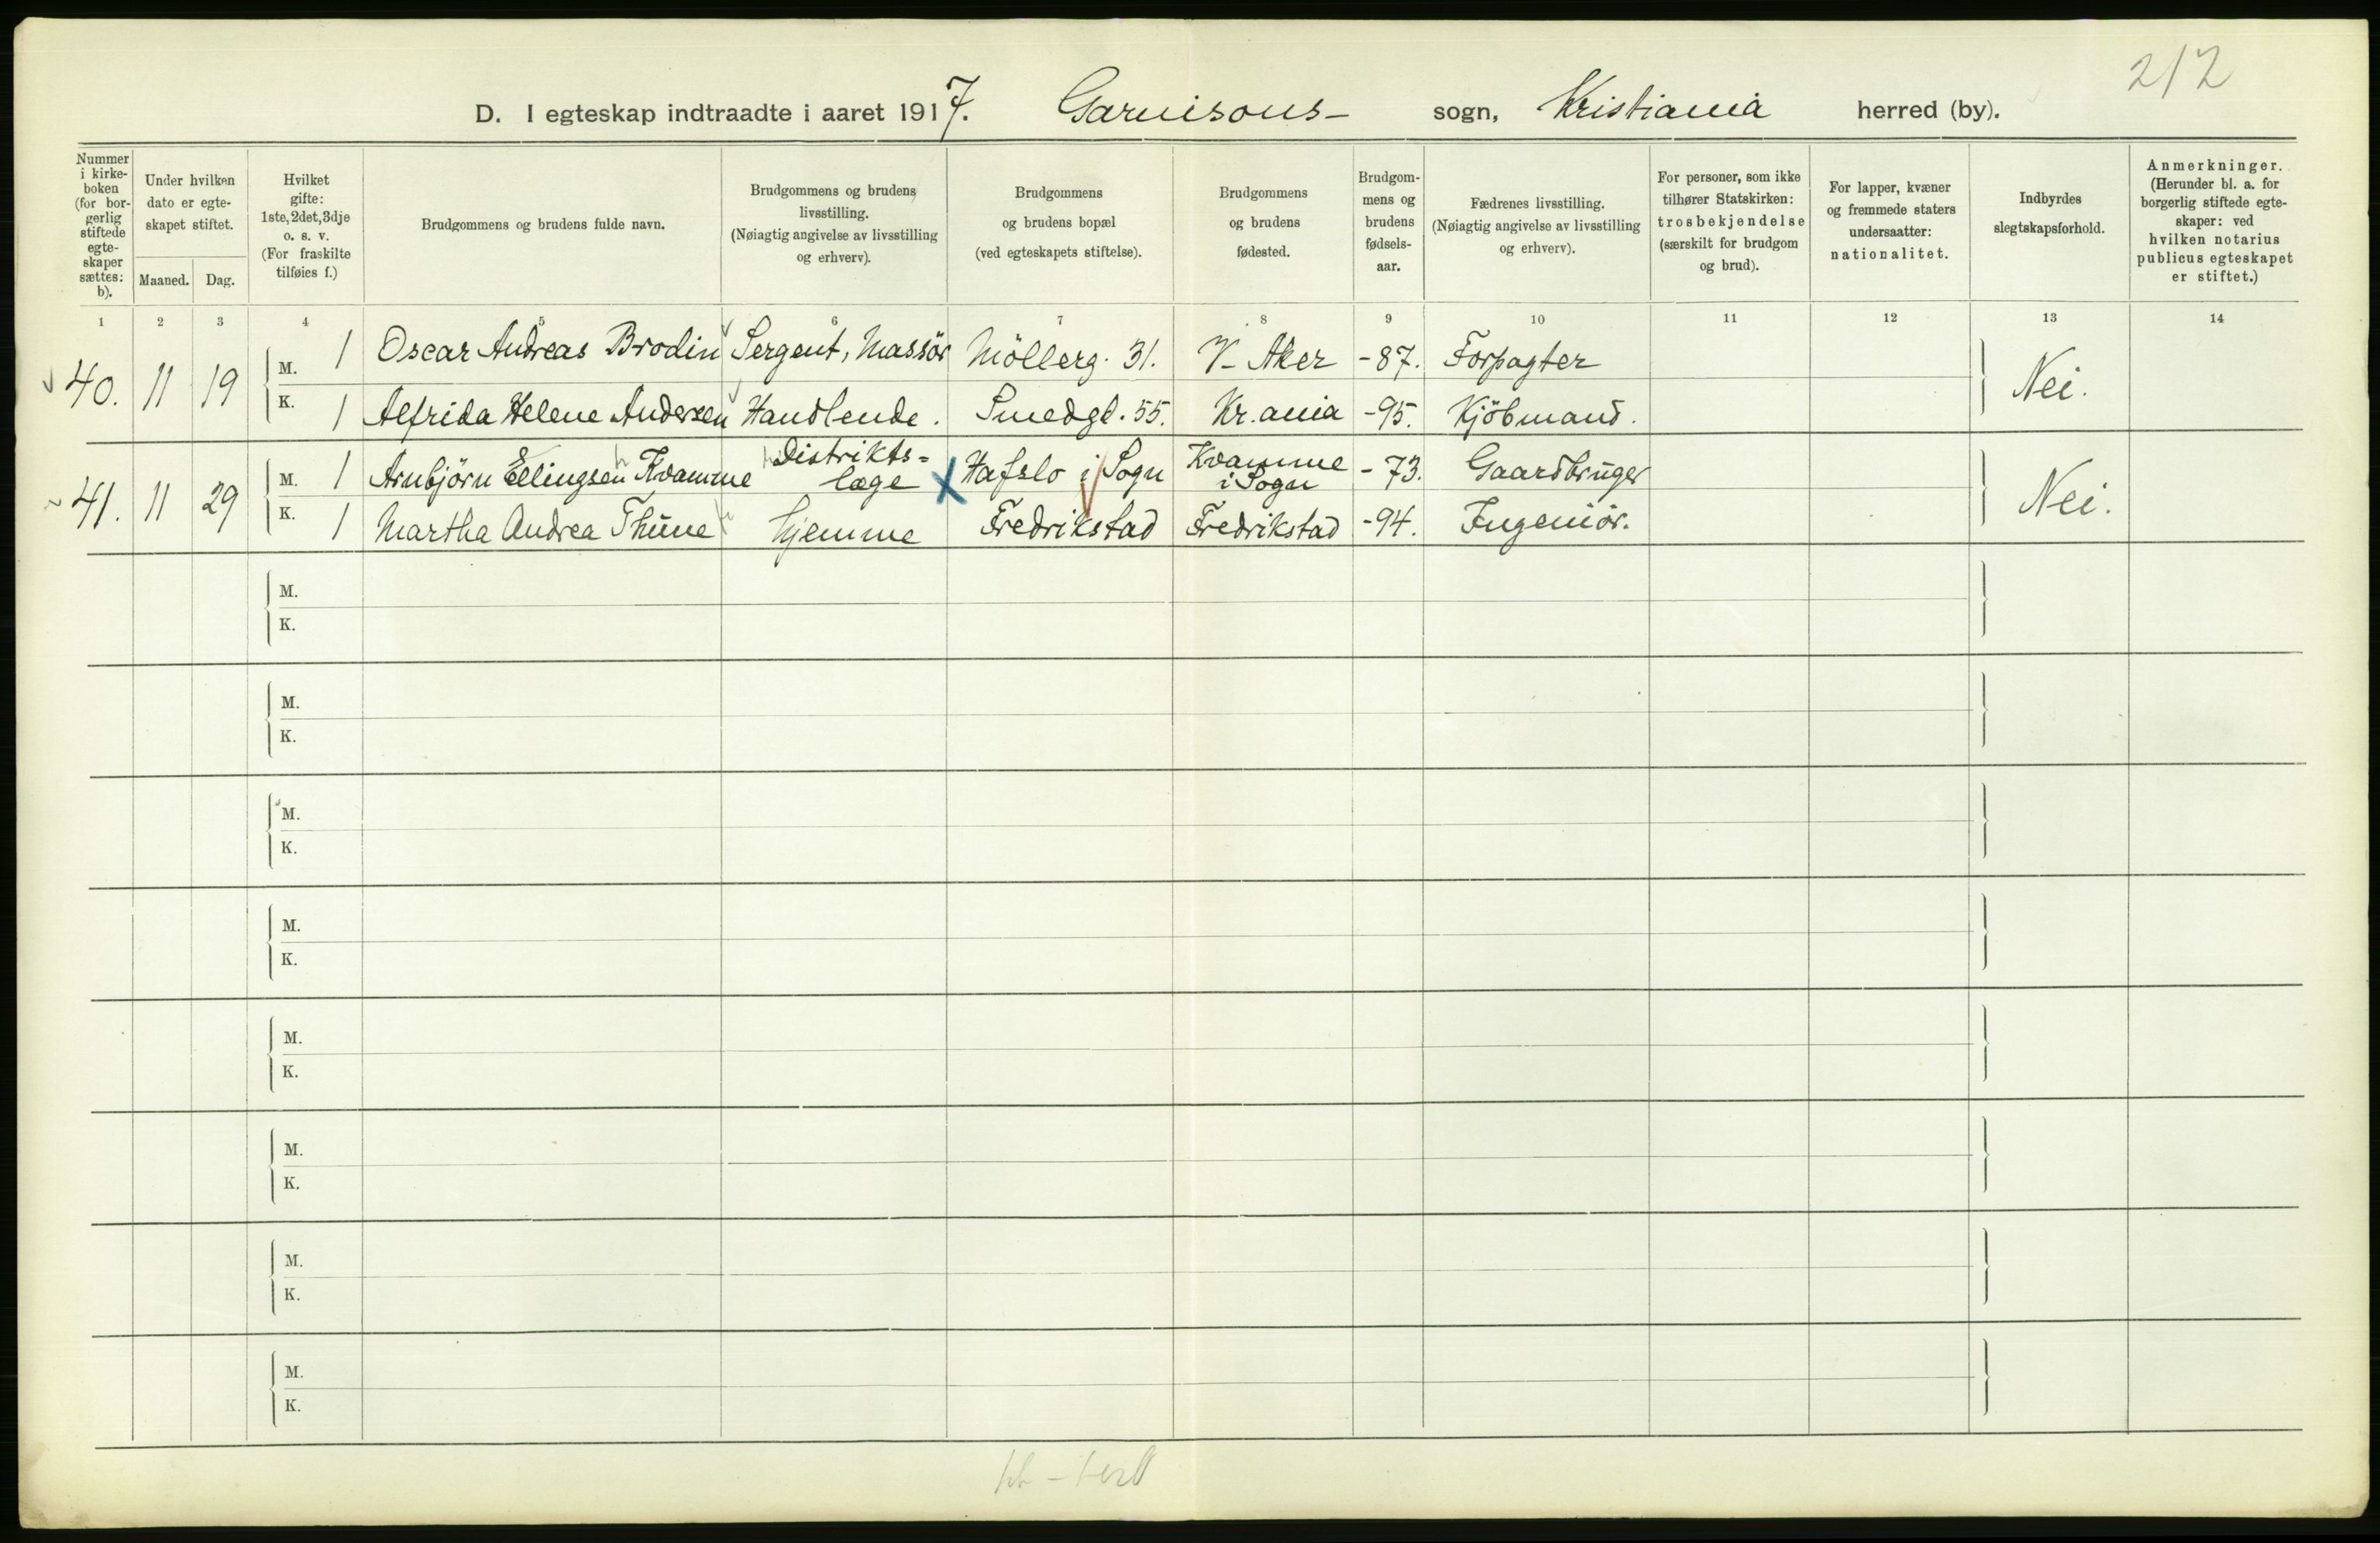 212
D. I egteskap indtraadte i aaret 1917. Garnisons- sogn, Kristiania herred (by).
Nummer i kirke-boken (for bor-gerlig stiftede egte-skaper sættes: b).
Under hvilken dato er egte-skapet stiftet.
Maaned. Dag.
Hvilket gifte: 1ste, 2det, 3dje o. s. v. (For fraskilte tilføies f.)
Brudgommens og brudens fulde navn.
Brudgommens og brudens livsstilling. (Nøiagtig angivelse av livsstilling og erhverv).
Brudgommens og brudens bopæl (ved egteskapets stiftelse).
Brudgommens og brudens fødested.
Brudgom-mens og brudens fødsels-aar.
Fædrenes livsstilling. (Nøiagtig angivelse av livsstilling og erhverv).
For personer, som ikke tilhører Statskirken: trosbekjendelse (særskilt for brudgom og brud).
For lapper, kvæner og fremmede staters undersaatter: nationalitet.
Indbyrdes slegtskapsforhold.
Anmerkninger. (Herunder bl. a. for borgerlig stiftede egte-skaper: ved hvilken notarius publicus egteskapet er stiftet.)
1 2 3 4 5 6 7 8 9 10 11 12 13 14
40. 11 19 M. 1 Oscar Andreas Brodin Sergent, Massör Möllerg. 31. V. Aker -87. Forpagter Nei.
K. 1 Alfrida Helene Andersen Handlende. Smedgt. 55. Kr.ania -95. Kjöbmand.
41. 11 29 M. 1 Arnbjörn Ellingsen Kvamme Distrikts=læge X Hafslo i Sogn Kvamme i Sogn -73. Gaardbruger Nei.
K. 1 Martha Andrea Thüne hjemme Fredrikstad Fredrikstad -94. Ingeniör.
M.
K.
M.
K.
M.
K.
M.
K.
M.
K.
M.
K.
M.
K.
M.
K.